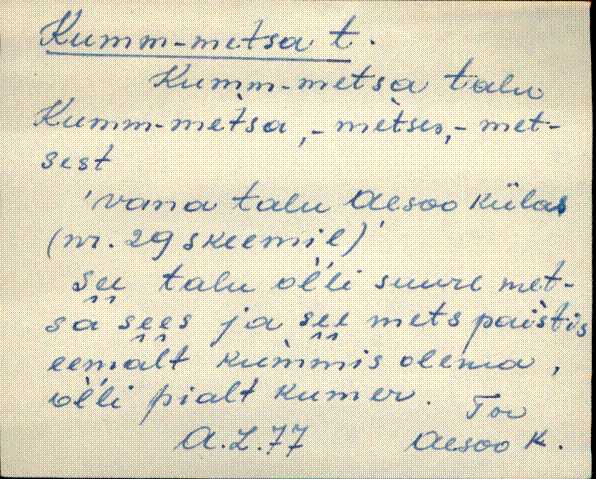 Kumm-metsa t.
Kumm-metsa talu
Kumm-mètsa, -mètses, -met-
sest
'vana talu Aesoo külas
(nr. 29 skeemil)'
see talu òlli suure met-
sa sees ja see mets paìstis
eemalt kùmmis olema,
òlli pialt kumer.
Tor
A.L.77 Aesoo k.